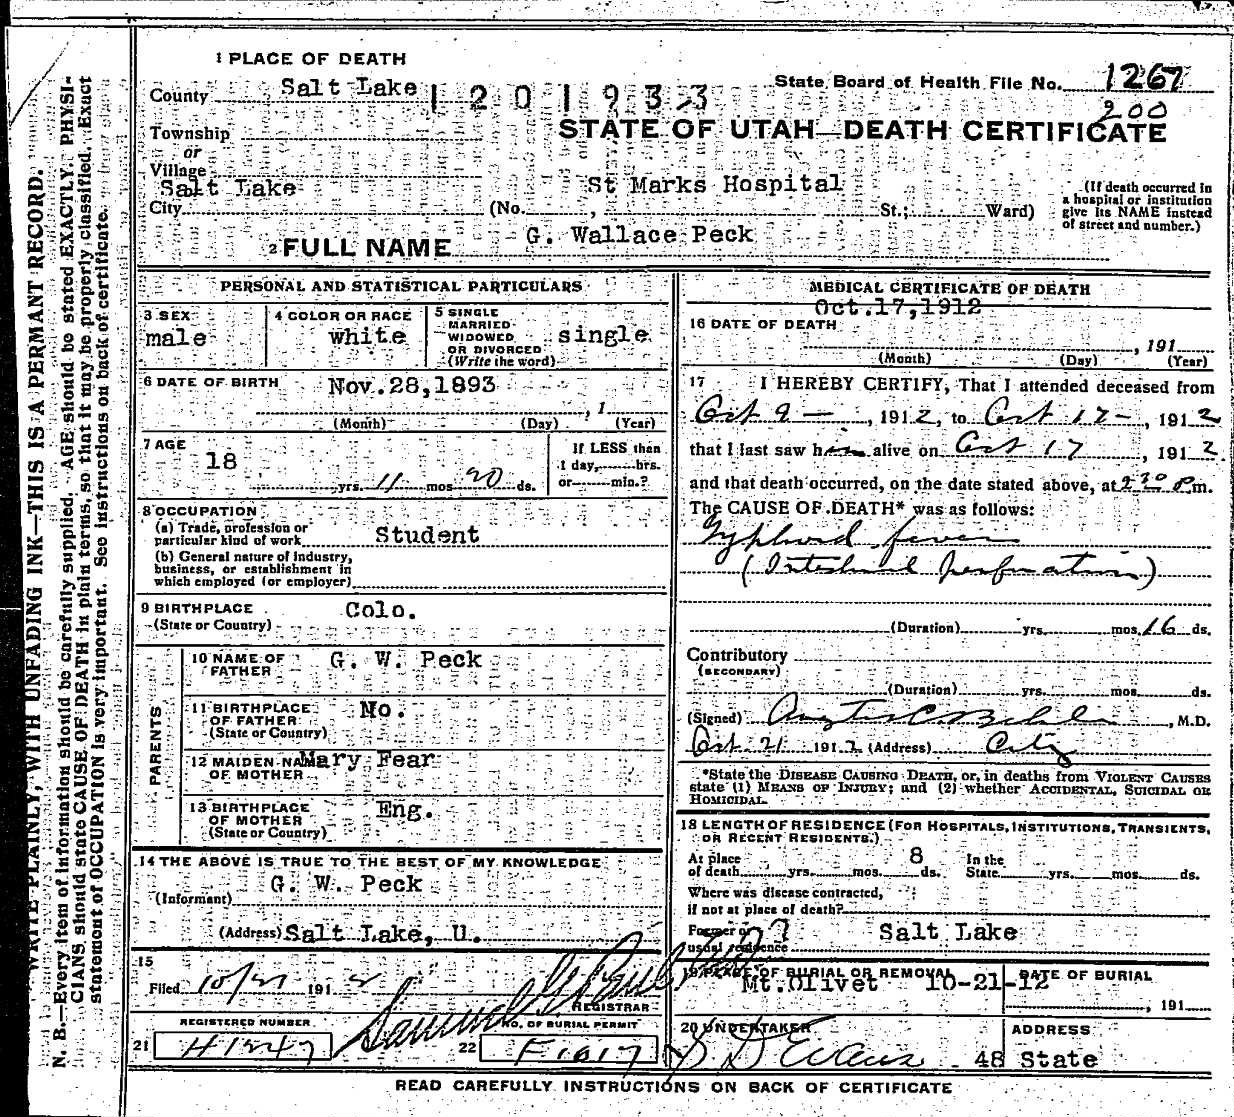 1 PLACE OF DEATH
County Salt Lake
1201933
State Board of Health File No. 1267
200
STATE OF UTAH—DEATH CERTIFICATE
Township
or
Village
Salt Lake
City
St Marks Hospital
(No. , St.; Ward)
(If death occurred in
a hospital or institution
give its NAME instead
of street and number.)
2 FULL NAME G. Wallace Peck
PERSONAL AND STATISTICAL PARTICULARS
3 SEX
male
4 COLOR OR RACE
white
5 SINGLE
MARRIED
WIDOWED
OR DIVORCED
(Write the word)
single
6 DATE OF BIRTH Nov. 28, 1893
, 1
(Month) (Day) (Year)
7 AGE
18 yrs. 11 mos 20 ds.
If LESS than
1 day, hrs.
or min.?
8 OCCUPATION
(a) Trade, profession or
particular kind of work Student
(b) General nature of industry,
business, or establishment in
which employed (or employer)
9 BIRTHPLACE
(State or Country)
Colo.
PARENTS
10 NAME OF
FATHER
G. W. Peck
11 BIRTHPLACE
OF FATHER
(State or Country)
No.
12 MAIDEN NAME
OF MOTHER
Mary Fear
13 BIRTHPLACE
OF MOTHER
(State or Country)
Eng.
14 THE ABOVE IS TRUE TO THE BEST OF MY KNOWLEDGE
(Informant) G. W. Peck
(Address) Salt Lake, U.
15
Filed 10/21 191 2
REGISTRAR
REGISTERED NUMBER
21 H1247
NO. OF BURIAL PERMIT
22 F1017
MEDICAL CERTIFICATE OF DEATH
Oct. 17, 1912
16 DATE OF DEATH
, 191
(Month) (Day) (Year)
17 I HEREBY CERTIFY, That I attended deceased from
Oct 9 — , 1912, to Oct 17 — , 1912
that I last saw him alive on Oct 17 , 1912.
and that death occurred, on the date stated above, at 2 30 P m.
The CAUSE OF DEATH* was as follows:
Typhoid fever
(Intestinal perforation)
(Duration) yrs. mos. 16 ds.
Contributory
(SECONDARY)
(Duration) yrs. mos ds.
(Signed) , M.D.
Oct. 21 191 2 (Address) City
*State the DISEASE CAUSING DEATH, or, in deaths from VIOLENT CAUSES
state (1) MEANS OF INJURY; and (2) whether ACCIDENTAL, SUICIDAL OR
HOMICIDAL.
18 LENGTH OF RESIDENCE (FOR HOSPITALS, INSTITUTIONS, TRANSIENTS,
OR RECENT RESIDENTS.)
At place
of death yrs. mos. 8 ds.
In the
State yrs. mos. ds.
Where was disease contracted,
if not at place of death?
Former or
usual residence
Salt Lake
19 PLACE OF BURIAL OR REMOVAL
Mt. Olivet 10-21-12
DATE OF BURIAL
, 191
20 UNDERTAKER
S D Evans
ADDRESS
48 State
READ CAREFULLY INSTRUCTIONS ON BACK OF CERTIFICATE
WRITE PLAINLY, WITH UNFADING INK—THIS IS A PERMANT RECORD.
N. B.—Every item of information should be carefully supplied. AGE should be stated EXACTLY. PHYSI-
CIANS should state CAUSE OF DEATH in plain terms, so that it may be properly classified. Exact
statement of OCCUPATION is very important. See instructions on back of certificate.